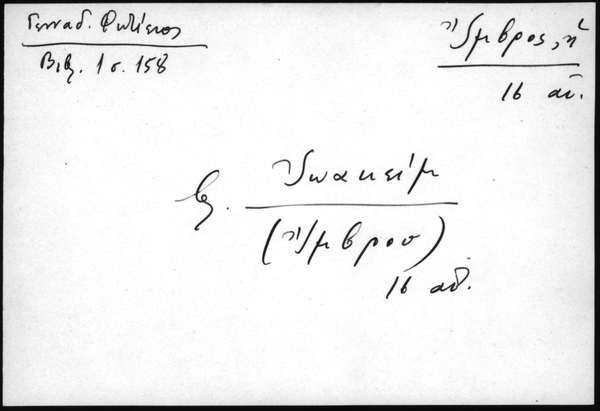 Γενναδ. Φωτίειος
Βιβ. 1 σ. 158
Ἴμβρος, ἡ
16 αἰ.
Ἰωακείμ
(Ἴμβρου)
16 αἰ.